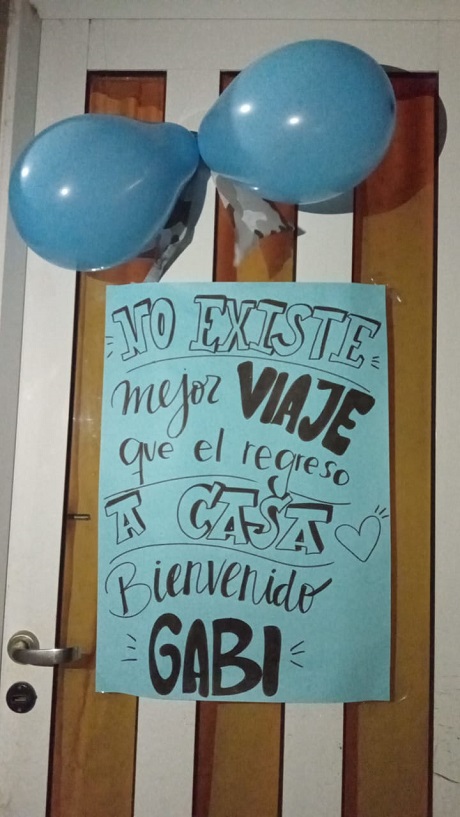 NO EXISTE
mejor VIAJE
que el regreso
A CASA
Bienvenido
GABI